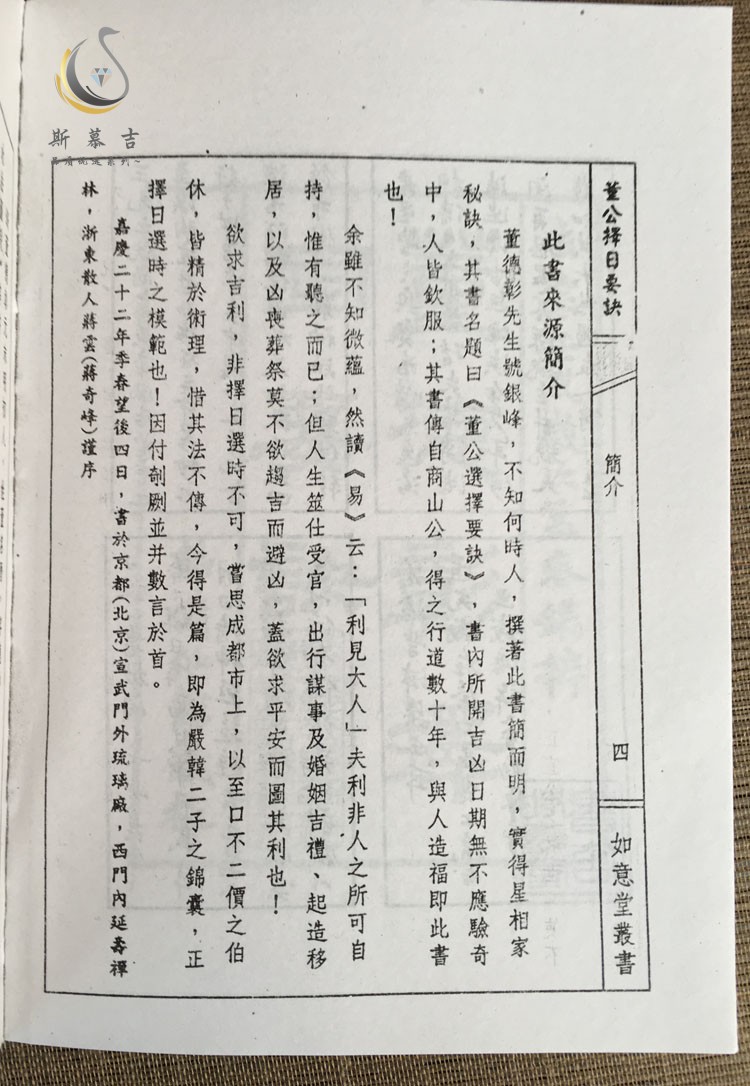 斯慕吉
董公擇日要訣
簡介
四
如意堂叢書
此書來源簡介
董德彰先生號銀峰，不知何時人，撰著此書簡而明，實得星相家
秘訣，其書名題曰《董公選擇要訣》，書內所開吉凶日期無不應驗奇
中，人皆欽服；其書傳自商山公，得之行道數十年，與人造福即此書
也！
余雖不知微蘊，然讀《易》云：「利見大人」夫利非人之所可自
持，惟有聽之而已；但人生筮仕受官，出行謀事及婚姻吉禮、起造移
居，以及凶喪葬祭莫不欲趨吉而避凶，蓋欲求平安而圖其利也！
欲求吉利，非擇日選時不可，嘗思成都市上，以至口不二價之伯
休，皆精於術理，惜其法不傳，今得是篇，即為嚴韓二子之錦囊，正
擇日選時之模範也！因付剞劂並并數言於首。
嘉慶二十二年季春望後四日，書於京都(北京)宣武門外琉璃廠，西門內延壽禪
林，浙東散人蔣雲(蔣奇峰)謹序